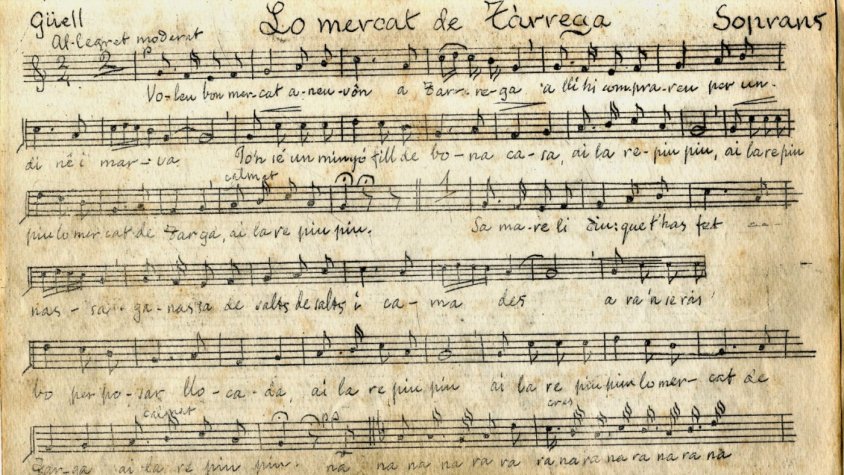 Güell Lo mercat de Tàrrega Soprans
Al·legret moderat
Vo-leu bon mer-cat a-neu-vôn a Tar-re-ga a lli hi compra-reu per un.
di né i mar-va Jo'n sé un minyó fill de bo-na ca-sa, ai la re-piu piu, ai la re piu
calmat
piu lo mer cat de Targa, ai la re piu piu. Sa ma-re li diu: que t'has fet
nas-sar-ga-nassa de salts de salts i ca-ma des a ra'n seràs
bo per po-sar llo-ca-da, ai la re piu piu ai la re piu piu lo mer- cat de
calmat cres
Tar-ga ai la re piu piu. na na na na ra ra ra na ra na ra na ra na